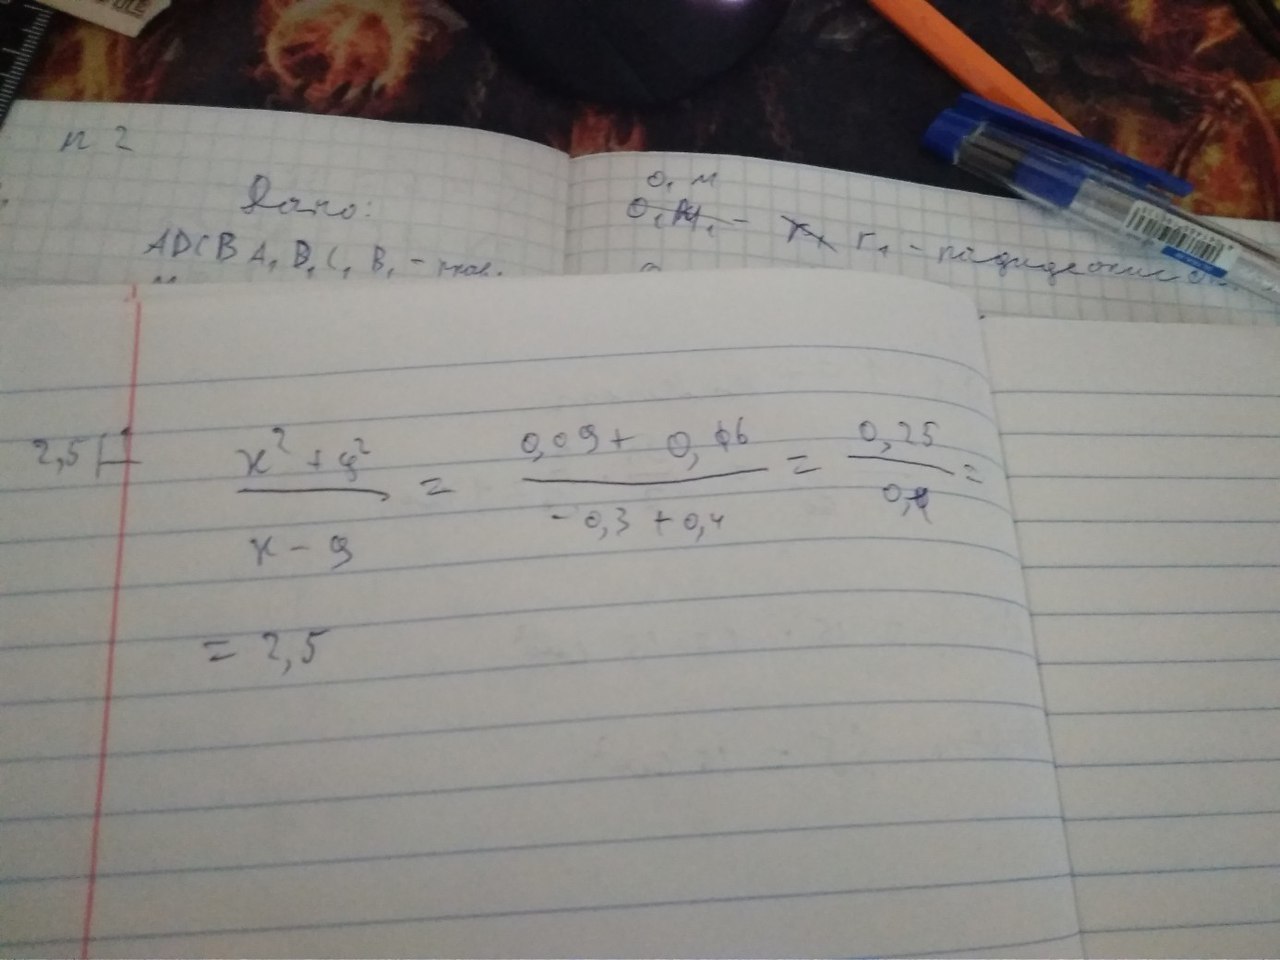 n 2
Дано:
ADCB A₁ D₁ C₁ B₁ -
O, M
O, M₁ - Γ₁ -
2,5
x² + y² / x - y = 0,09 + 0,16 / -0,3 + 0,4 = 0,25 / 0,1 =
= 2,5